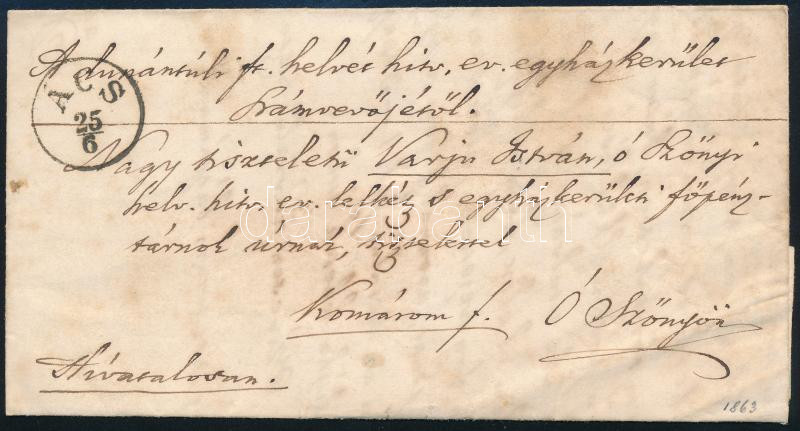 A dunántúli ft. helvét hitv. ev. egyházkerület
Számvevőjétől.
ÁCS
25
6
Nagy tiszteletü Varju István, ó Szőnyi
helv. hitv. ev. lelkész s egyházkerületi főpénz-
tárnok úrnak, tisztelettel
darabanth
Komárom f. Ó Szőnyön
Hivatalosan.
1863